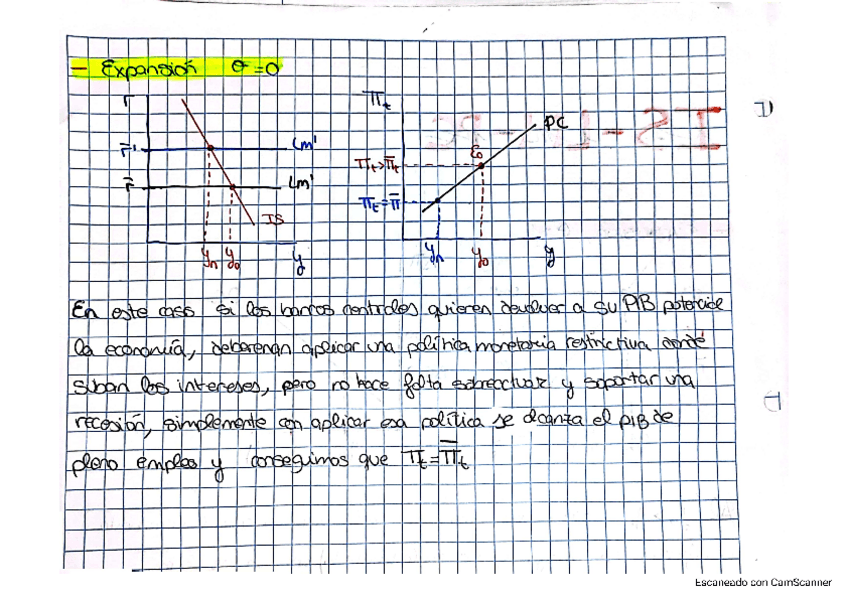 - Expansión θ=0
r
r̄'
r̄
Lm'
Lm'
IS
yn y0 y
πt
πt>π̄t
πt=π̄
PC
E0
yn y0 y
En este caso si los bancos centrales quieren devolver a su PIB potencial
la economía, deberenan aplicar una política monetaria restrictiva donde
suban los intereses, pero no hace falta sobreactuar y soportar una
recesión, simplemente con aplicar esa política se alcanza el PIB de
pleno empleo y conseguimos que πt=π̄t
Escaneado con CamScanner